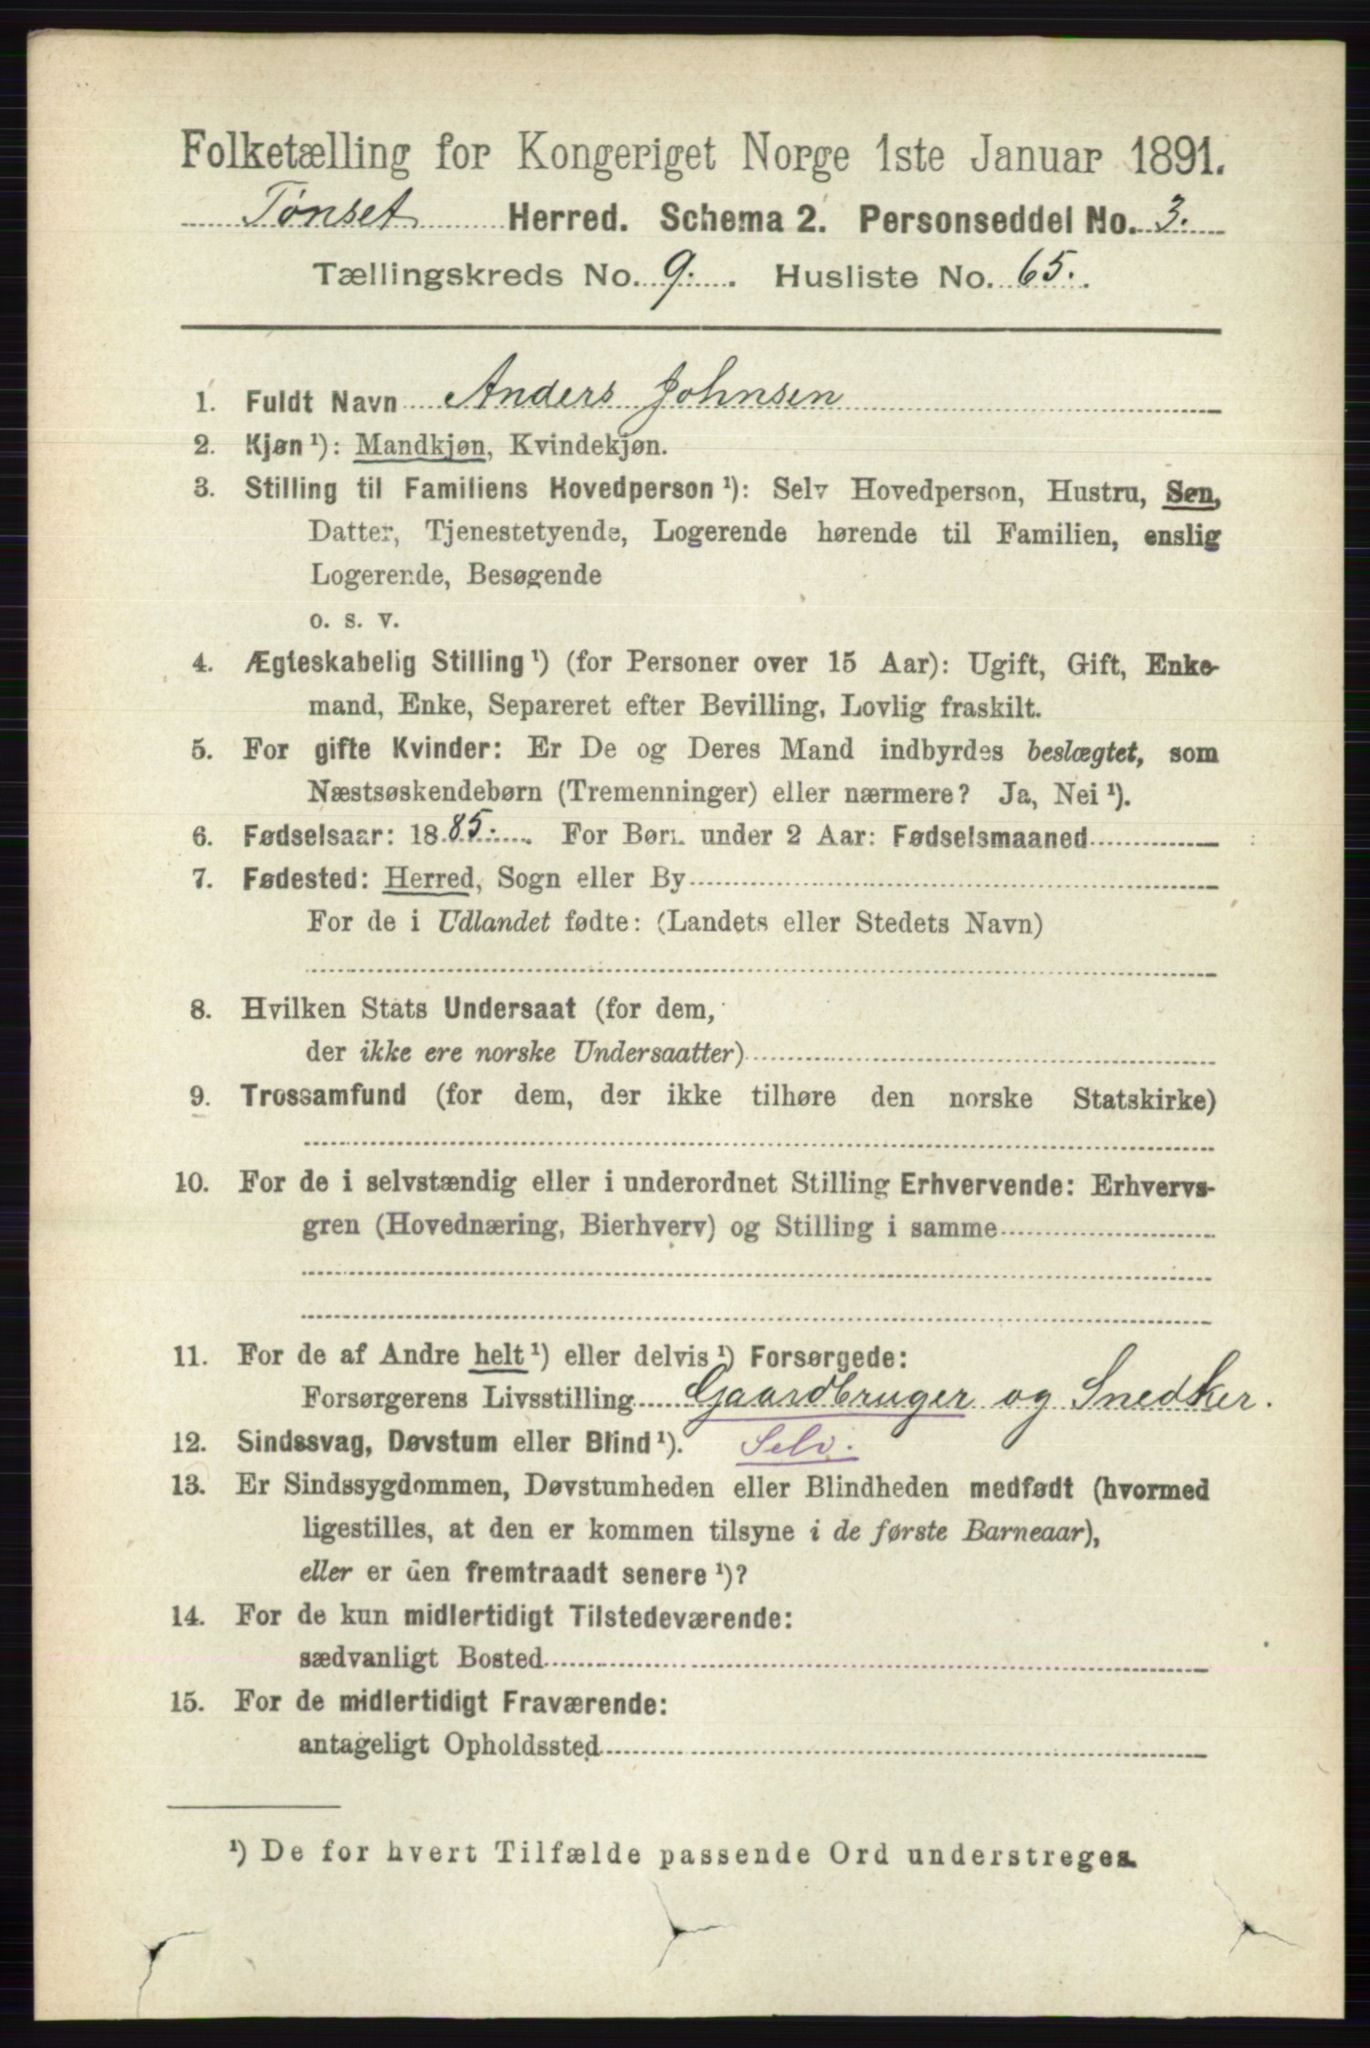 Folketælling for Kongeriget Norge 1ste Januar 1891.
Tønset Herred. Schema 2. Personseddel No. 3.
Tællingskreds No. 9. Husliste No. 65.
1. Fuldt Navn Anders Johnsen
2. Kjøn¹): Mandkjøn, Kvindekjøn.
3. Stilling til Familiens Hovedperson¹): Selv Hovedperson, Hustru, Søn,
Datter, Tjenestetyende, Logerende hørende til Familien, enslig
Logerende, Besøgende
o. s. v.
4. Ægteskabelig Stilling¹) (for Personer over 15 Aar): Ugift, Gift, Enke-
mand, Enke, Separeret efter Bevilling, Lovlig fraskilt.
5. For gifte Kvinder: Er De og Deres Mand indbyrdes beslægtet, som
Næstsøskendebørn (Tremenninger) eller nærmere? Ja, Nei¹).
6. Fødselsaar: 1885. For Børn under 2 Aar: Fødselsmaaned
7. Fødested: Herred, Sogn eller By
For de i Udlandet fødte: (Landets eller Stedets Navn)
8. Hvilken Stats Undersaat (for dem,
der ikke ere norske Undersaatter)
9. Trossamfund (for dem, der ikke tilhøre den norske Statskirke)
10. For de i selvstændig eller i underordnet Stilling Erhvervende: Erhvervs-
gren (Hovednæring, Bierhverv) og Stilling i samme
11. For de af Andre helt¹) eller delvis¹) Forsørgede:
Forsørgerens Livsstilling Gaardbruger og Snedker.
12. Sindssvag, Døvstum eller Blind¹). Selv.
13. Er Sindssygdommen, Døvstumheden eller Blindheden medfødt (hvormed
ligestilles, at den er kommen tilsyne i de første Barneaar),
eller er den fremtraadt senere¹)?
14. For de kun midlertidigt Tilstedeværende:
sædvanligt Bosted
15. For de midlertidigt Fraværende:
antageligt Opholdssted
¹) De for hvert Tilfælde passende Ord understreges.